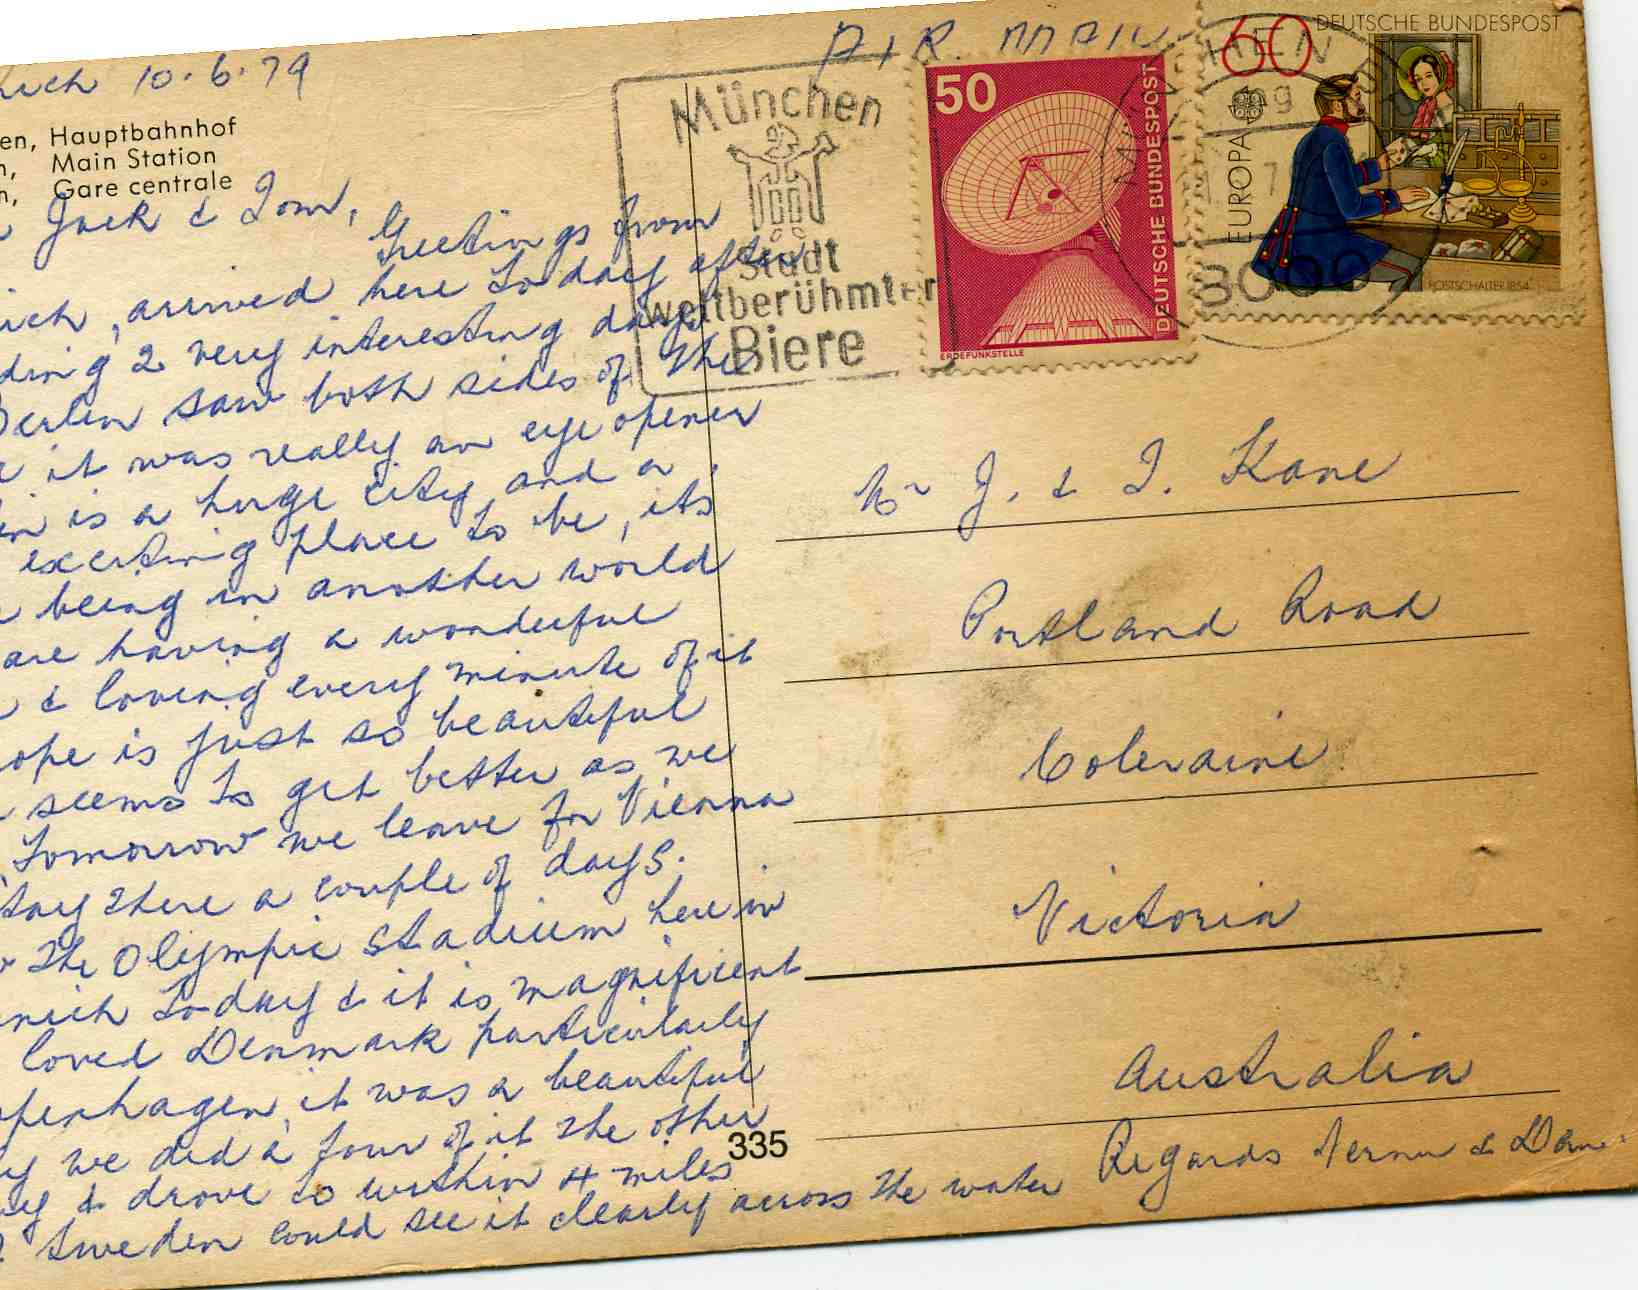 ich 10.6.79
AIR MAIL
en, Hauptbahnhof
n, Main Station
n, Gare centrale
Jack & Tom,
Greetings from
ich, arrived here today after
ding 2 very interesting days
Berlin saw both sides of the
it was really an eye opener
in is a huge city and a
exciting place to be, its
being in another world
are having a wonderful
& loving every minute of it
ope is just so beautiful
seems to get better as we
Tomorrow we leave for Vienna
tay there a couple of days.
the Olympic Stadium here in
nich today & it is magnificent
loved Denmark particularly
penhagen, it was a beautiful
we did a tour of it the other
& drove to within 4 miles
Sweden could see it clearly across the water
Regards
München
Stadt
weltberühmter
Biere
50
DEUTSCHE BUNDESPOST
ERDEFUNKSTELLE
60
DEUTSCHE BUNDESPOST
EUROPA
POSTSCHALTER 1854
MÜNCHEN
8000
Mr J. & T. Kane
Portland Road
Coleraine
Victoria
Australia
335